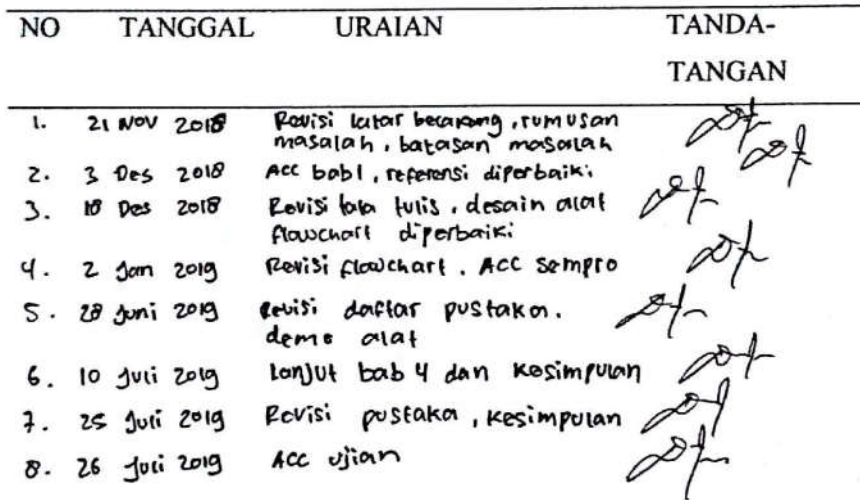 NO TANGGAL URAIAN TANDA-
TANGAN
1. 21 Nov 2018 Revisi latar belakang, rumusan
masalah, batasan masalah
2. 3 Des 2018 Acc bab1, referensi diperbaiki
3. 18 Des 2018 Revisi tata tulis, desain alat
flowchart diperbaiki
4. 2 Jan 2019 Revisi flowchart, ACC sempro
5. 28 Juni 2019 Revisi daftar pustaka.
demo alat
6. 10 Juli 2019 Lanjut bab 4 dan kesimpulan
7. 25 Juli 2019 Revisi pustaka, kesimpulan
8. 26 Juli 2019 ACC ujian